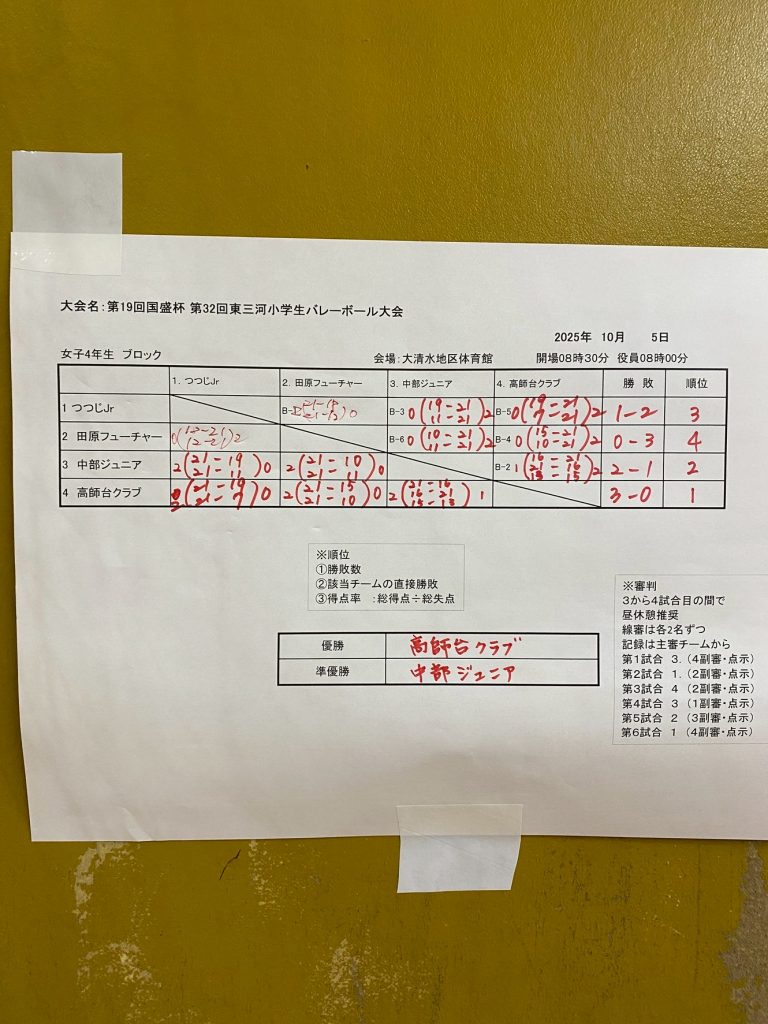 大会名：第19回国盛杯 第32回東三河小学生バレーボール大会
2025年 10月 5日
女子4年生 ブロック 会場：大清水地区体育館 開場08時30分 役員08時00分
1. つつじJr 2. 田原フューチャー 3. 中部ジュニア 4. 高師台クラブ 勝 敗 順位
1 つつじJr B-3 0(19-21 11-21)2 B-5 0(19-21 7-21)2 1-2 3
2 田原フューチャー 0(12-21)2 B-6 0(10-21 11-21)2 B-4 0(15-21 10-21)2 0-3 4
3 中部ジュニア 2(21-19 21-11)0 2(21-10 21-11)0 B-2 1(16-21 21-16 13-15)2 2-1 2
4 高師台クラブ 2(21-19 21-7)0 2(21-15 21-10)0 2(21-16 16-21 15-13)1 3-0 1
※順位
①勝敗数
②該当チームの直接勝敗
③得点率 ：総得点÷総失点
優勝 高師台クラブ
準優勝 中部ジュニア
※審判
３から４試合目の間で
昼休憩推奨
線審は各2名ずつ
記録は主審チームから
第1試合 3.（4副審・点示）
第2試合 1.（2副審・点示）
第3試合 4（2副審・点示）
第4試合 3（1副審・点示）
第5試合 2（3副審・点示）
第6試合 1（4副審・点示）